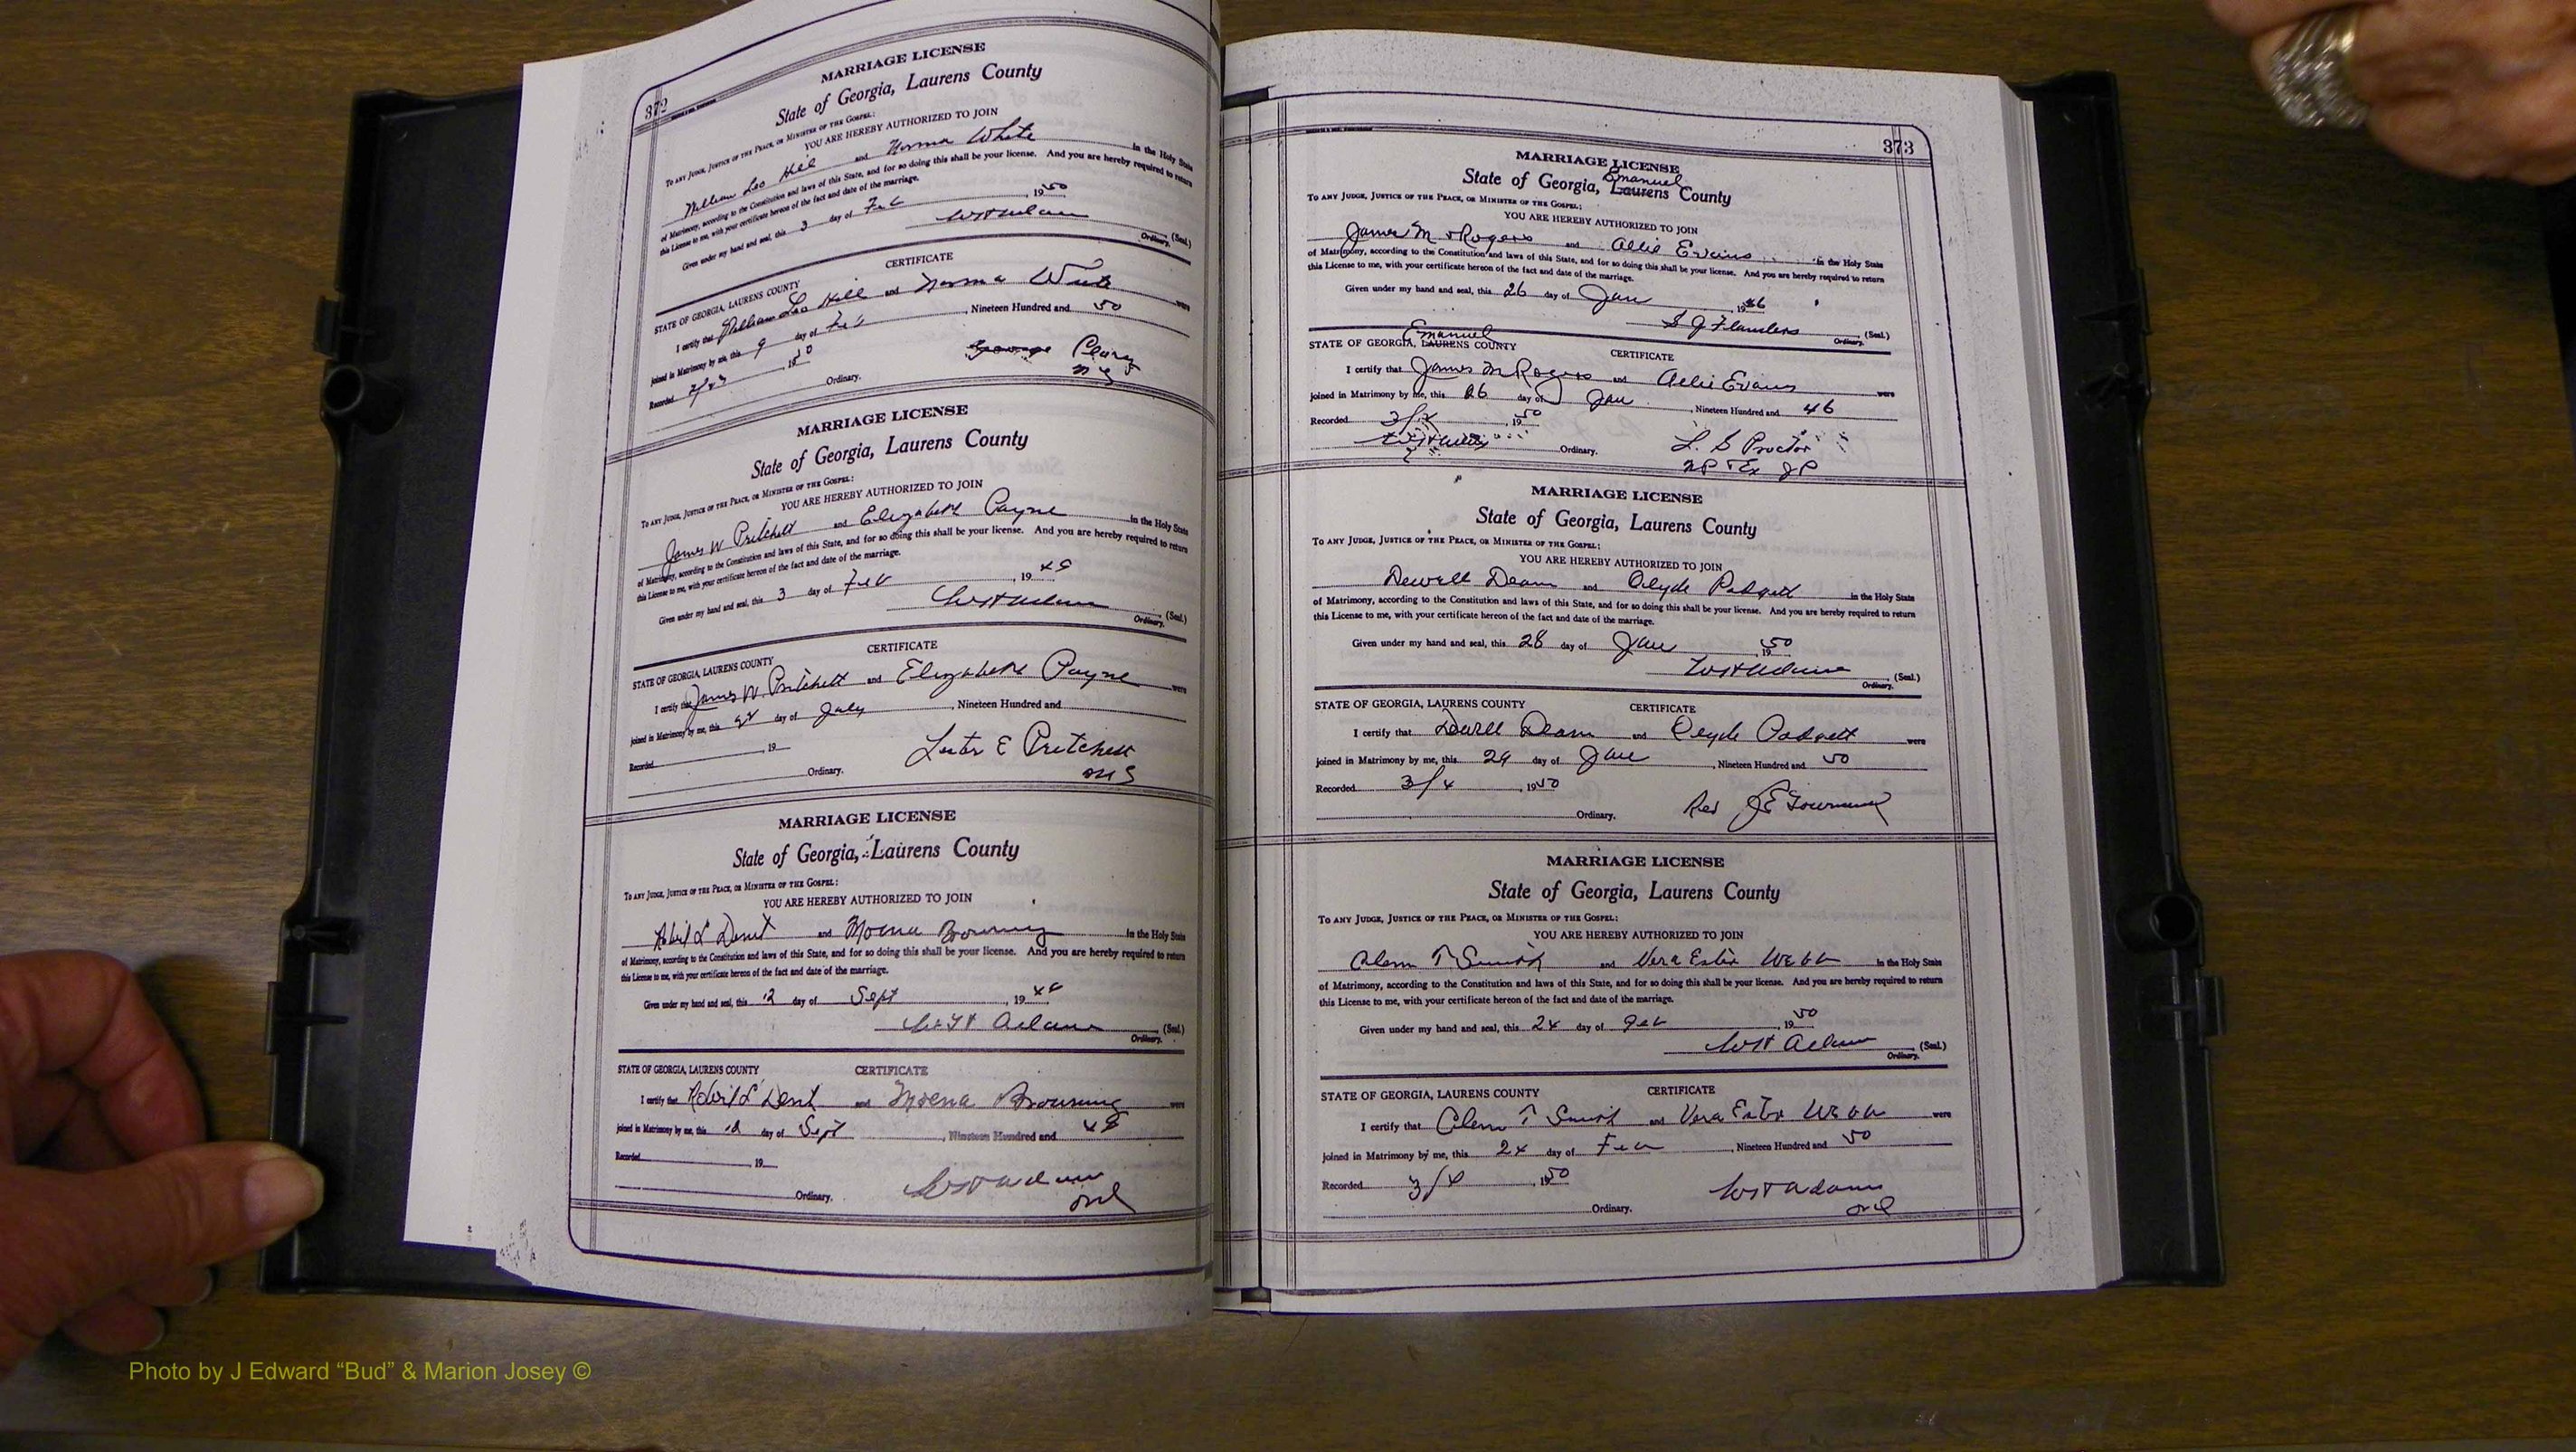 372
MARRIAGE LICENSE
State of Georgia, Laurens County
TO ANY JUDGE, JUSTICE OF THE PEACE, OR MINISTER OF THE GOSPEL:
YOU ARE HEREBY AUTHORIZED TO JOIN
William Leo Hill and Norma White in the Holy State
of Matrimony, according to the Constitution and laws of this State, and for so doing this shall be your license. And you are hereby required to return
this License to me, with your certificate hereon of the fact and date of the marriage.
Given under my hand and seal, this 3 day of Feb, 1950
WH Adams (Seal.)
Ordinary.
CERTIFICATE
STATE OF GEORGIA, LAURENS COUNTY
I certify that William Leo Hill and Norma White were
joined in Matrimony by me, this 9 day of Feb, Nineteen Hundred and 50
Recorded 1950
Ordinary.
MARRIAGE LICENSE
State of Georgia, Laurens County
TO ANY JUDGE, JUSTICE OF THE PEACE, OR MINISTER OF THE GOSPEL:
YOU ARE HEREBY AUTHORIZED TO JOIN
James W Pritchett and Elizabeth Payne in the Holy State
of Matrimony, according to the Constitution and laws of this State, and for so doing this shall be your license. And you are hereby required to return
this License to me, with your certificate hereon of the fact and date of the marriage.
Given under my hand and seal, this 3 day of Feb, 19
WH Adams (Seal.)
Ordinary.
CERTIFICATE
STATE OF GEORGIA, LAURENS COUNTY
I certify that James W. Pritchett and Elizabeth Payne were
joined in Matrimony by me, this day of July, Nineteen Hundred and
Recorded , 19
Lester E Pritchett
Ordinary.
MARRIAGE LICENSE
State of Georgia, Laurens County
TO ANY JUDGE, JUSTICE OF THE PEACE, OR MINISTER OF THE GOSPEL:
YOU ARE HEREBY AUTHORIZED TO JOIN
Robert L Dent and Moena Browning in the Holy State
of Matrimony, according to the Constitution and laws of this State, and for so doing this shall be your license. And you are hereby required to return
this License to me, with your certificate hereon of the fact and date of the marriage.
Given under my hand and seal, this 12 day of Sept, 1948
WH Adams (Seal.)
Ordinary.
STATE OF GEORGIA, LAURENS COUNTY CERTIFICATE
I certify that Robert L Dent and Moena Browning were
joined in Matrimony by me, this 12 day of Sept, Nineteen Hundred and 48
Recorded , 19
WH Adams
Ordinary. Ord
373
MARRIAGE LICENSE
Emanuel
State of Georgia, Laurens County
TO ANY JUDGE, JUSTICE OF THE PEACE, OR MINISTER OF THE GOSPEL:
YOU ARE HEREBY AUTHORIZED TO JOIN
James M Rogers and Allie Evans in the Holy State
of Matrimony, according to the Constitution and laws of this State, and for so doing this shall be your license. And you are hereby required to return
this License to me, with your certificate hereon of the fact and date of the marriage.
Given under my hand and seal, this 26 day of Jan, 1946
S J Flanders (Seal.)
Ordinary.
Emanuel
STATE OF GEORGIA, LAURENS COUNTY CERTIFICATE
I certify that James M Rogers and Allie Evans were
joined in Matrimony by me, this 26 day of Jan, Nineteen Hundred and 46
Recorded 1950
Ordinary. L. S Proctor
NP & Ex JP
MARRIAGE LICENSE
State of Georgia, Laurens County
TO ANY JUDGE, JUSTICE OF THE PEACE, OR MINISTER OF THE GOSPEL:
YOU ARE HEREBY AUTHORIZED TO JOIN
Dewell Deam and Clyde Padgett in the Holy State
of Matrimony, according to the Constitution and laws of this State, and for so doing this shall be your license. And you are hereby required to return
this License to me, with your certificate hereon of the fact and date of the marriage.
Given under my hand and seal, this 28 day of Jan 1950
WH Adams (Seal.)
Ordinary.
STATE OF GEORGIA, LAURENS COUNTY CERTIFICATE
I certify that Dewell Deam and Clyde Padgett were
joined in Matrimony by me, this 29 day of Jan, Nineteen Hundred and 50
Recorded 3/4, 1950
Ordinary. Rev J E
MARRIAGE LICENSE
State of Georgia, Laurens County
TO ANY JUDGE, JUSTICE OF THE PEACE, OR MINISTER OF THE GOSPEL:
YOU ARE HEREBY AUTHORIZED TO JOIN
Glenn T Smith and Vera Estie Webb in the Holy State
of Matrimony, according to the Constitution and laws of this State, and for so doing this shall be your license. And you are hereby required to return
this License to me, with your certificate hereon of the fact and date of the marriage.
Given under my hand and seal, this 24 day of Feb, 1950
WH Adams (Seal.)
Ordinary.
STATE OF GEORGIA, LAURENS COUNTY CERTIFICATE
I certify that Glenn T Smith and Vera Webb were
joined in Matrimony by me, this 24 day of Feb, Nineteen Hundred and 50
Recorded 3/4, 1950
WH Adams
Ordinary. Ord
Photo by J Edward “Bud” & Marion Josey ©